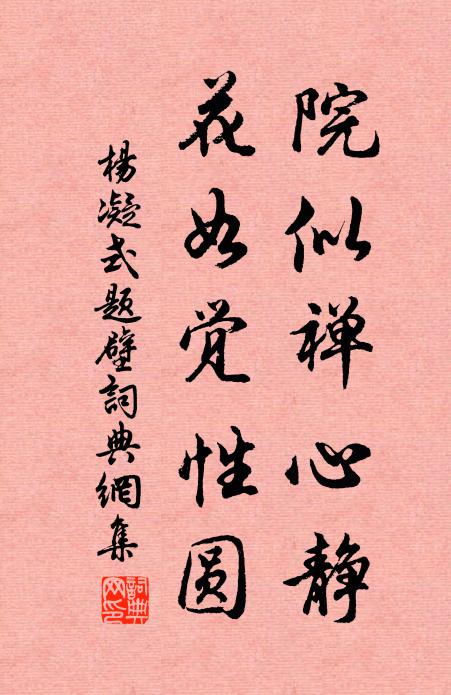 院似禅心静
花如觉性圆
楊凝式题壁詞典網集
詞典网印